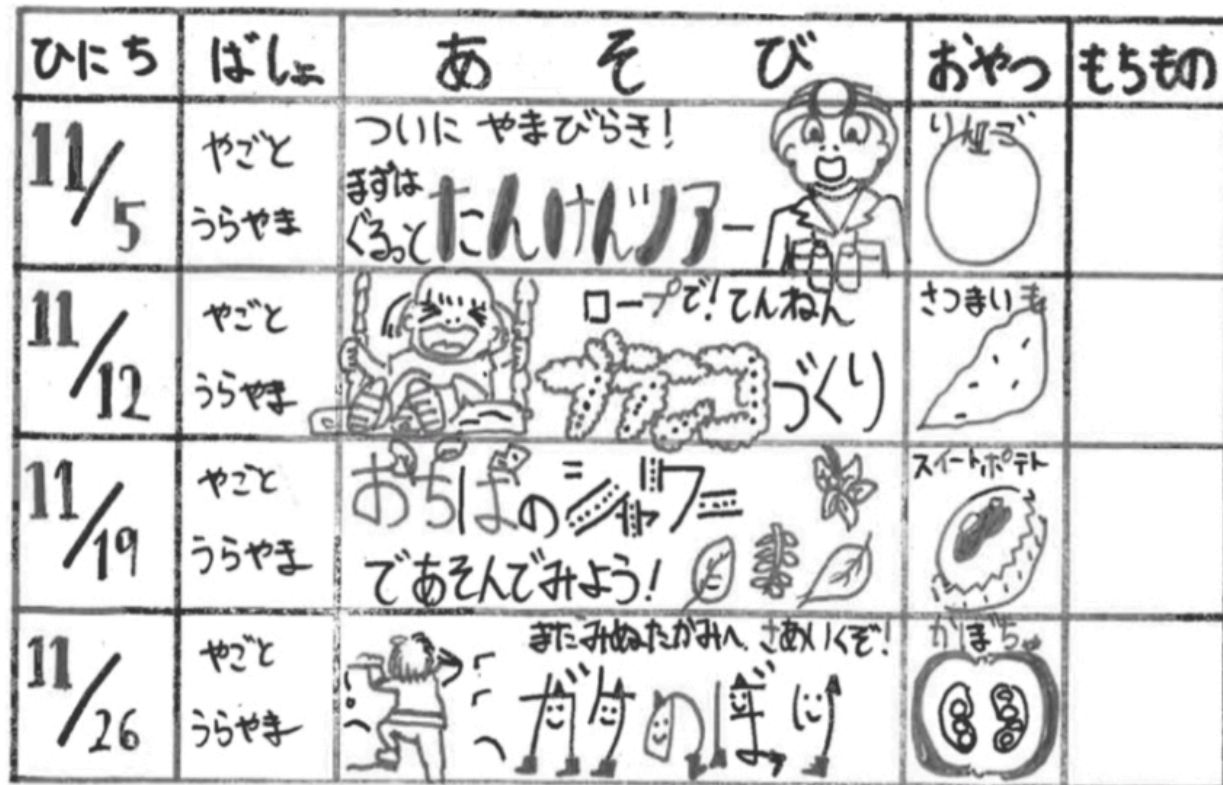 ひにち ばしょ あそび おやつ もちもの
11/5
やごと
うらやま
ついに やまびらき!
まずは
ぐるっと たんけんツアー
りんご
11/12
やごと
うらやま
ロープで!てんねん
づくり
さつまいも
11/19
やごと
うらやま
おちばのシャワー
であそんでみよう!
スイートポテト
11/26
やごと
うらやま
まだみぬたかみへ、さあいくぞ!
ガケのぼり
かぼちゃ